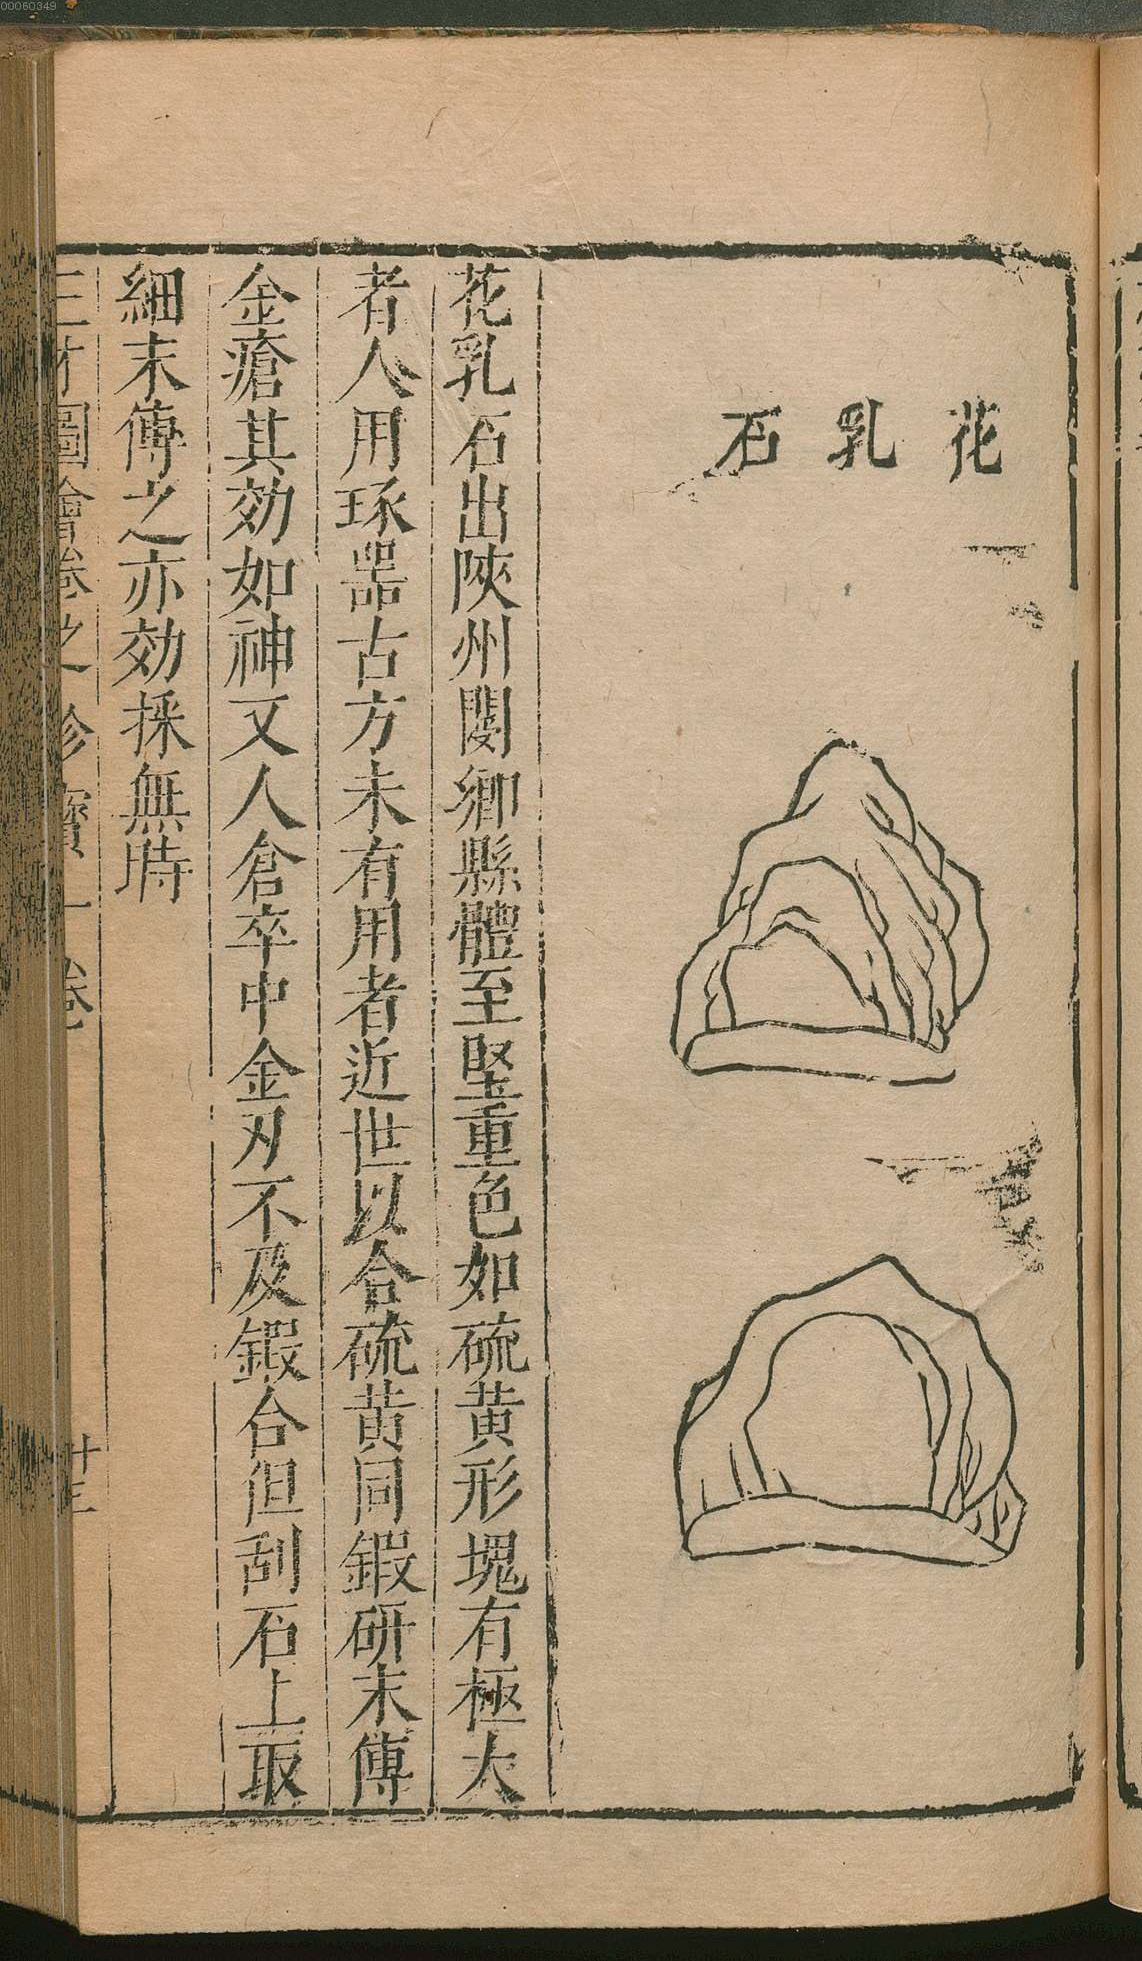 00060349
花乳石
花乳石出陜州閿鄉縣體至堅重色如硫黃形塊有極大
者人用琢噐古方未有用者近世以合硫黃同鍜研末傅
金瘡其効如神又人倉卒中金刃不及鍜合但刮石上取
細末傅之亦効採無時
三才圖會卷之 珍寶一卷
廿三